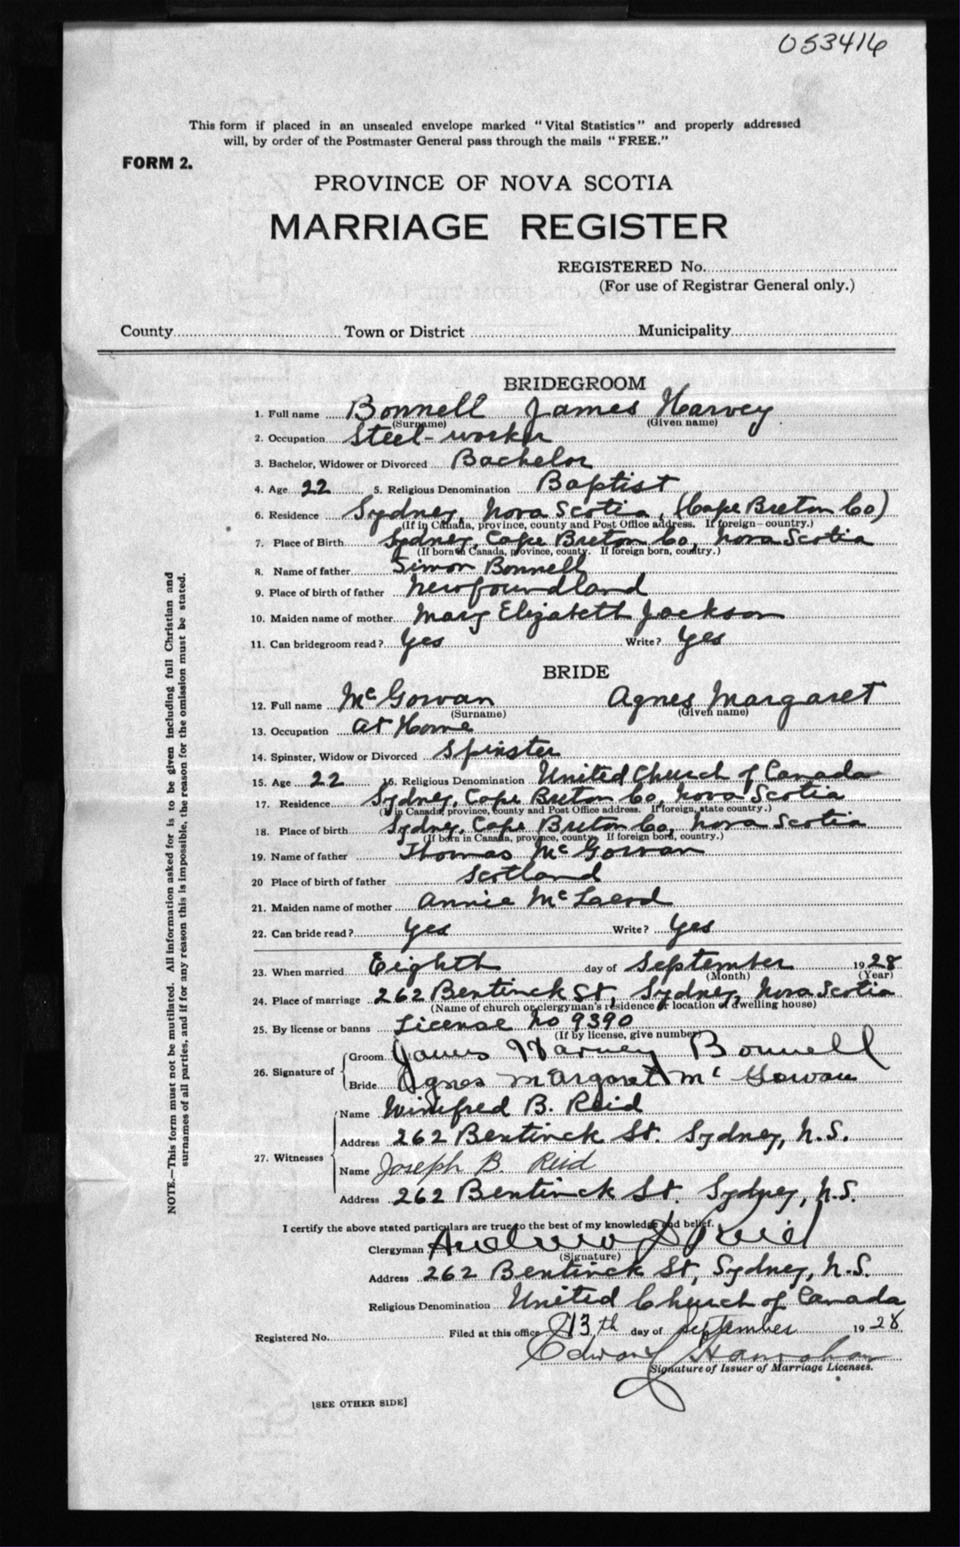 053416
This form if placed in an unsealed envelope marked "Vital Statistics" and properly addressed
will, by order of the Postmaster General pass through the mails "FREE."
FORM 2.
PROVINCE OF NOVA SCOTIA
MARRIAGE REGISTER
REGISTERED No.
(For use of Registrar General only.)
County Town or District Municipality
BRIDEGROOM
1. Full name Bonnell James Harvey
(Surname) (Given name)
2. Occupation Steel-worker
3. Bachelor, Widower or Divorced Bachelor
4. Age 22 5. Religious Denomination Baptist
6. Residence Sydney, Nova Scotia, (Cape Breton Co)
(If in Canada, province, county and Post Office address. If foreign—country.)
7. Place of Birth Sydney, Cape Breton Co, Nova Scotia
(If born in Canada, province, county. If foreign born, country.)
8. Name of father Simon Bonnell
9. Place of birth of father Newfoundland
10. Maiden name of mother Mary Elizabeth Jackson
11. Can bridegroom read? Yes Write? Yes
BRIDE
12. Full name McGowan Agnes Margaret
(Surname) (Given name)
13. Occupation At Home
14. Spinster, Widow or Divorced Spinster
15. Age 22 16. Religious Denomination United Church of Canada
17. Residence Sydney, Cape Breton Co, Nova Scotia
(If in Canada, province, county and Post Office address. If foreign, state country.)
18. Place of birth Sydney, Cape Breton Co, Nova Scotia
(If born in Canada, province, county. If foreign born, country.)
19. Name of father Thomas McGowan
20 Place of birth of father Scotland
21. Maiden name of mother Annie McLeod
22. Can bride read? Yes Write? Yes
23. When married Eighth day of September 1928
(Month) (Year)
24. Place of marriage 262 Bentinck St, Sydney, Nova Scotia
(Name of church or clergyman's residence or location of dwelling house)
25. By license or banns License No 9390
(If by license, give number)
26. Signature of
Groom James Harvey Bonnell
Bride Agnes Margaret McGowan
27. Witnesses
Name Winifred B. Reid
Address 262 Bentinck St. Sydney, N.S.
Name Joseph B. Reid
Address 262 Bentinck St. Sydney, N.S.
I certify the above stated particulars are true to the best of my knowledge and belief.
Clergyman Andrew D Reid
(Signature)
Address 262 Bentinck St, Sydney, N.S.
Religious Denomination United Church of Canada
Registered No. Filed at this office 13th day of September 1928
Edward Hanrahan
Signature of Issuer of Marriage Licenses.
[SEE OTHER SIDE]
NOTE.—This form must not be mutilated. All information asked for is to be given including full Christian and
surnames of all parties, and if for any reason this is impossible, the reason for the omission must be stated.